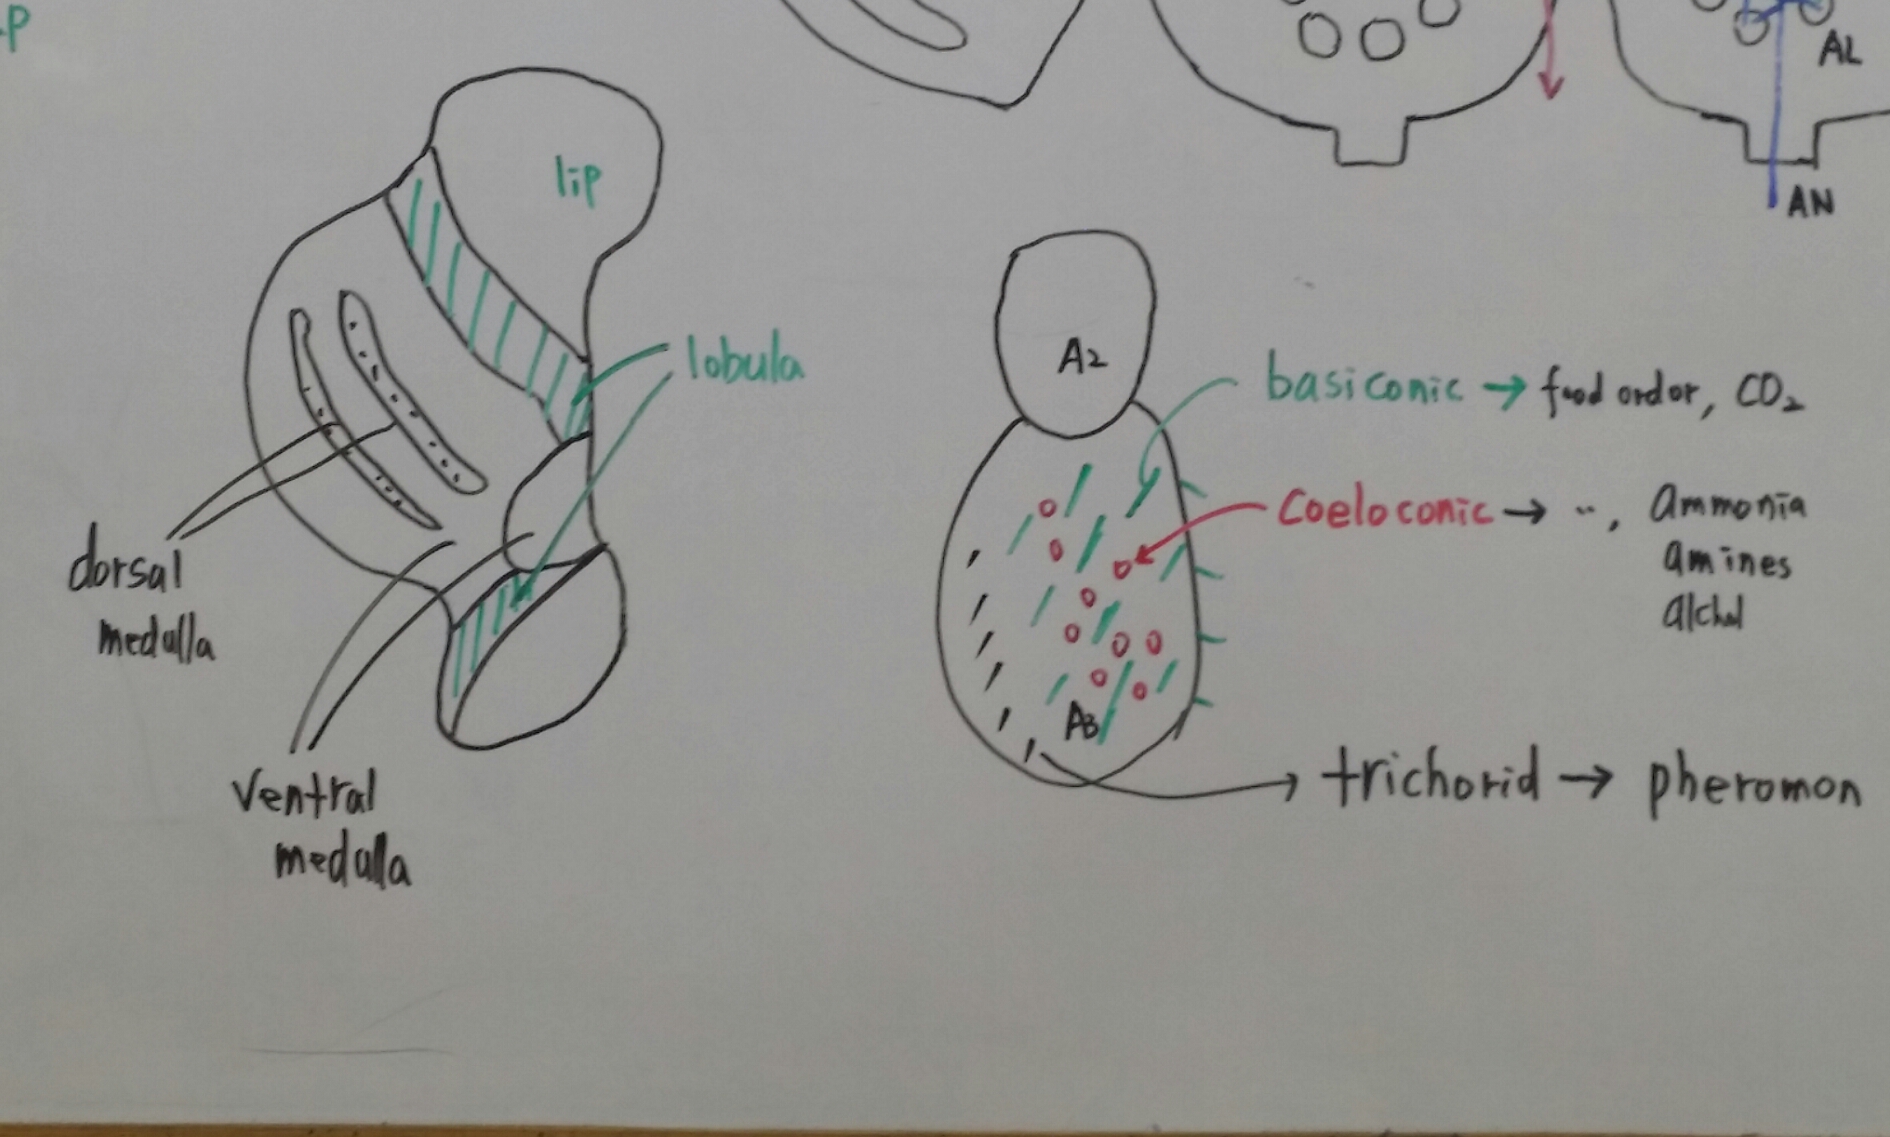 lip
lobula
dorsal
medulla
ventral
medulla
AL
AN
A2
basiconic → food ordor, CO2
Coeloconic → .. , Ammonia
amines
alchol
A3
trichorid → pheromon